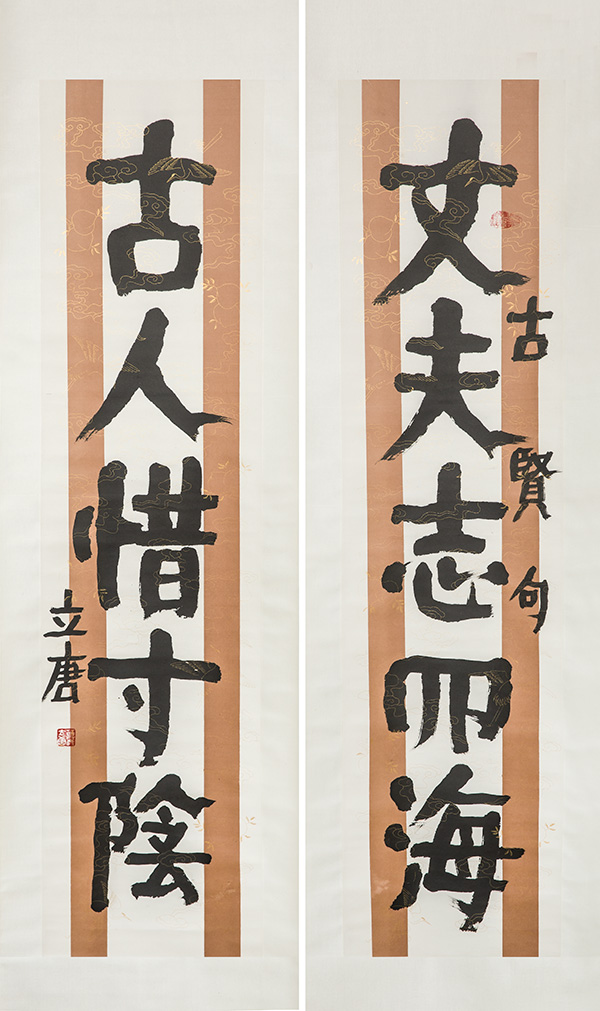 丈夫志四海
古賢句
古人惜寸陰
立唐